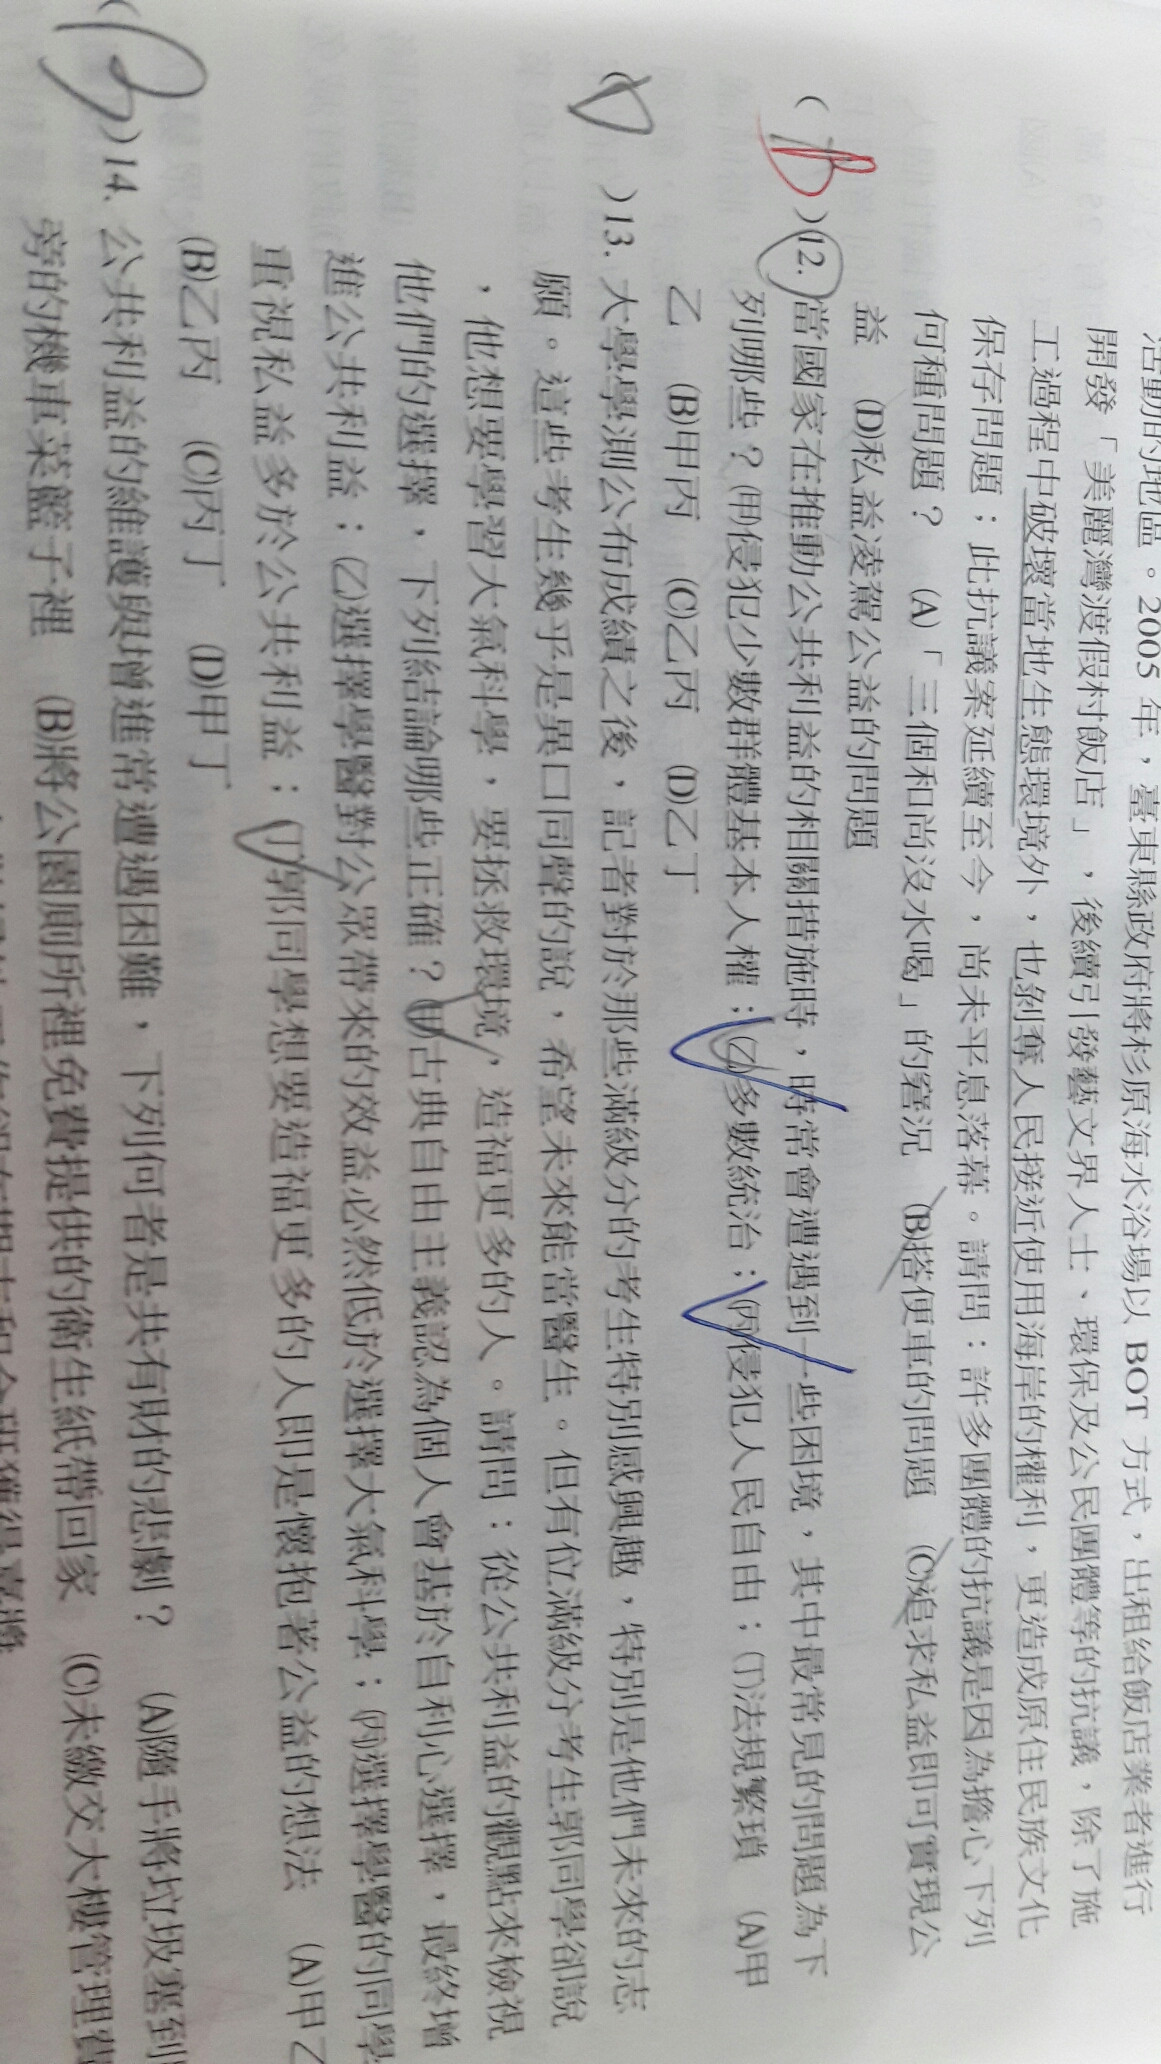 活動的地區。2005 年，臺東縣政府將杉原海水浴場以 BOT 方式，出租給飯店業者進行
開發「美麗灣渡假村飯店」，後續引發藝文界人士、環保及公民團體等的抗議，除了施
工過程中破壞當地生態環境外，也剝奪人民接近使用海岸的權利，更造成原住民族文化
保存問題；此抗議案延續至今，尚未平息落幕。請問：許多團體的抗議是因為擔心下列
何種問題？ (A)「三個和尚沒水喝」的窘況 (B)搭便車的問題 (C)追求私益即可實現公
益 (D)私益凌駕公益的問題
( B )12. 當國家在推動公共利益的相關措施時，時常會遭遇到一些困境，其中最常見的問題為下
列哪些？(甲)侵犯少數群體基本人權；(乙)多數統治；(丙)侵犯人民自由；(丁)法規繁瑣 (A)甲
乙 (B)甲丙 (C)乙丙 (D)乙丁
( D )13. 大學學測公布成績之後，記者對於那些滿級分的考生特別感興趣，特別是他們未來的志
願。這些考生幾乎是異口同聲的說，希望未來能當醫生。但有位滿級分考生郭同學卻說
，他想要學習大氣科學，要拯救環境，造福更多的人。請問：從公共利益的觀點來檢視
他們的選擇，下列結論哪些正確？(甲)古典自由主義認為個人會基於自利心選擇，最終增
進公共利益；(乙)選擇學醫對公眾帶來的效益必然低於選擇大氣科學；(丙)選擇學醫的同學
重視私益多於公共利益；(丁)郭同學想要造福更多的人即是懷抱著公益的想法 (A)甲乙
(B)乙丙 (C)丙丁 (D)甲丁
( B )14. 公共利益的維護與增進常遭遇困難，下列何者是共有財的悲劇？ (A)隨手將垃圾塞到
旁的機車菜籃子裡 (B)將公園廁所裡免費提供的衛生紙帶回家 (C)未繳交大樓管理費